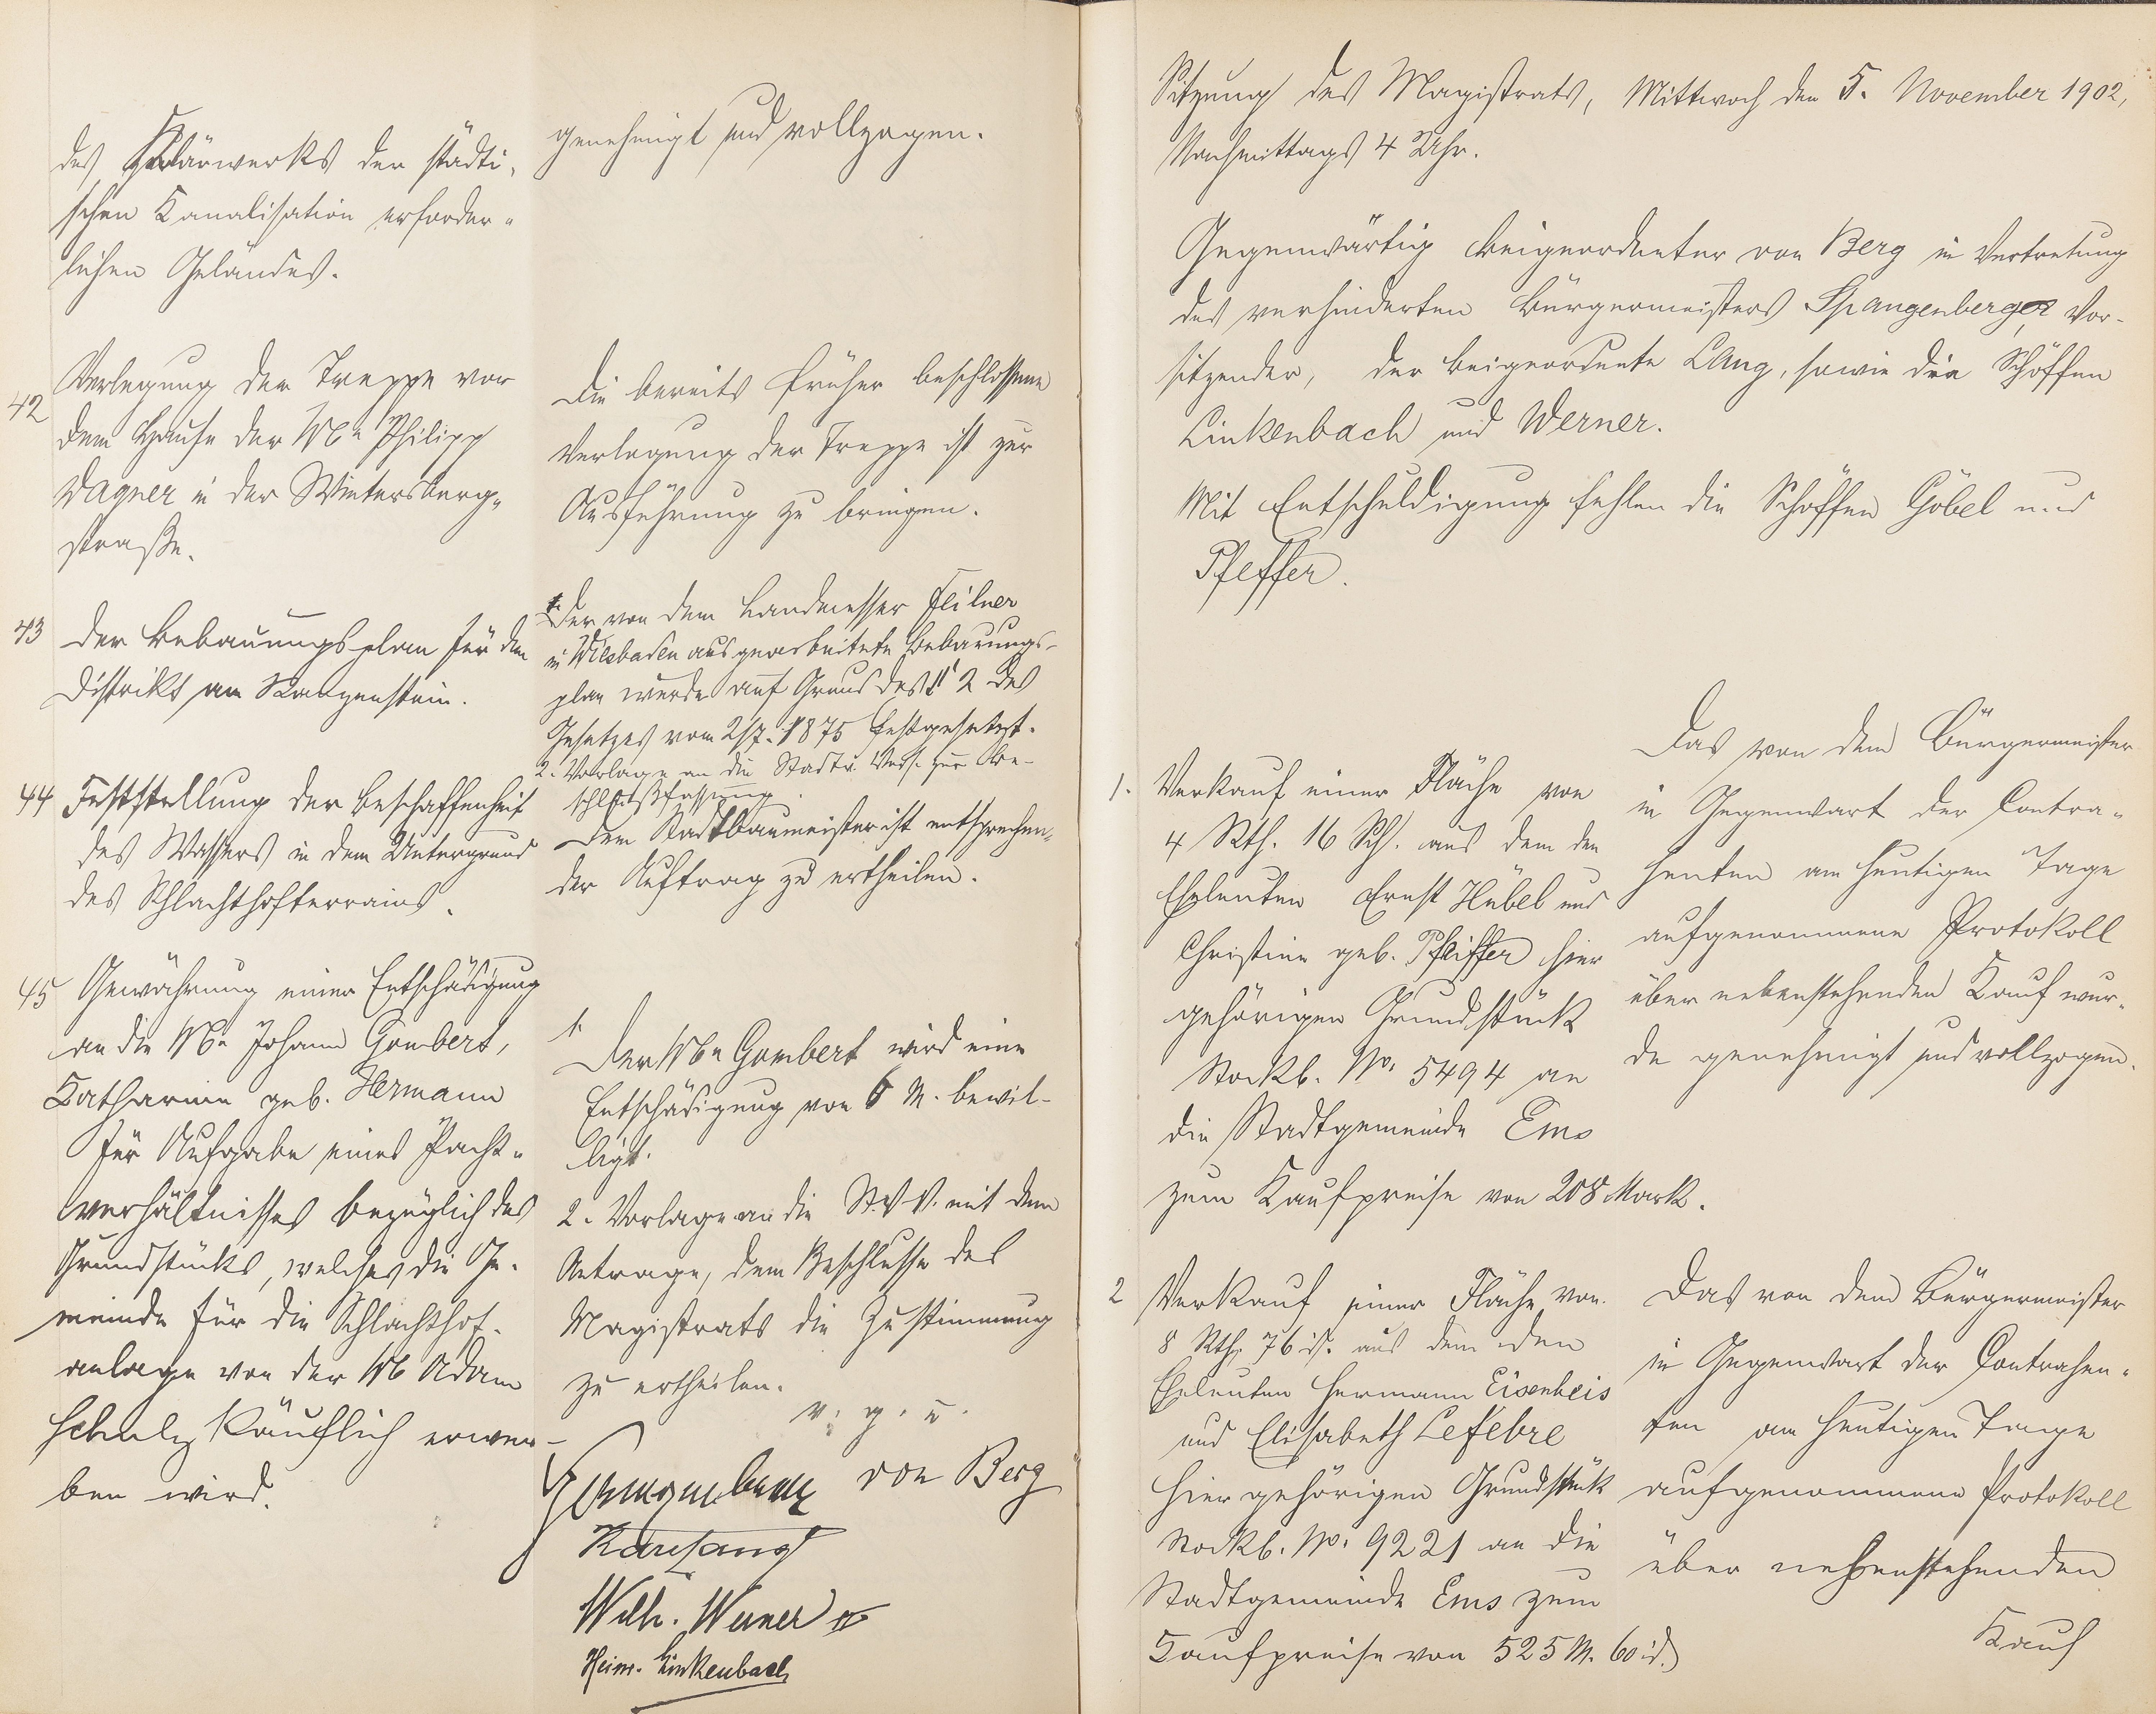 des Klärwerks der städti-
schen Kanalisation erforder-
lichen Geländes.
genehmigt und vollzogen.
42
Verlegung der Treppe vor
dem Hause der Ww Philipp
Wagner in der Wintersberg-
straße.
Die bereits früher beschlossene
Verlegung der Treppe ist zur
Ausführung zu bringen.
43 Der Bebauungsplan für den
Distrikt am
1. Der von dem Landmesser Feilner
in Wiesbaden ausgearbeitete Bebauungs-
plan wurde auf Grund des § 2 des
Gesetzes vom 2/7. 1875 festgesetzt.
2. Vorlage an die Stadtv. Vers. zur Be-
schlußfassung.
44 Feststellung der Beschaffenheit
des Wassers in dem Untergrund
des Schlachthofterrains.
Dem Stadtbaumeister ist entsprechen-
der Auftrag zu ertheilen.
45 Gewährung einer Entschädigung
an die Ww Johann Gombert,
Katharina geb. Hermann
für Aufgabe eines Pacht-
verhältnisses bezüglich des
Grundstücks, welches die Ge-
meinde für die Schlachthof-
anlage von der Ww Adam
Schulz käuflich erwer-
ben wird.
1.
Der Ww Gombert wird eine
Entschädigung von 6 M. bewil-
ligt.
2. Vorlage an die St.V.V. mit dem
Antrage, dem Beschlusse des
Magistrats die Zustimmung
zu ertheilen.
v. g. u.
Spangenberg von Berg
Wilh. Werner
Heinr. Linkenbach
Sitzung des Magistrats, Mittwoch den 5. November 1902,
Nachmittags 4 Uhr.
Gegenwärtig Beigeordneter von Berg in Vertretung
des verhinderten Bürgermeisters Spangenberg, Vor-
sitzender, der Beigeordnete Lang, sowie die Schöffen
Linkenbach und Werner.
Mit Entschuldigung fehlen die Schöffen Göbel und
Pfeffer.
1. Verkauf einer Fläche von
4 Rth. 16 Sch. aus dem den
Eheleuten Ernst Hübel und
Christine geb. Pfeiffer hier
gehörigen Grundstück
Stockb. No. 5494 an
die Stadtgemeinde Ems
zum Kaufpreise von 208 Mark.
Das von dem Bürgermeister
in Gegenwart der Contra-
henten am heutigen Tage
aufgenommene Protokoll
über nebenstehenden Kauf wur-
de genehmigt und vollzogen.
2 Verkauf einer Fläche von
8 Rth. 76 aus dem den
Eheleuten Hermann Eisenbeis
und Elisabeth Lefebre
hier gehörigen Grundstück
Stockb. No. 9221 an die
Stadtgemeinde Ems zum
Kaufpreise von 525 M. 60 d.
Das von dem Bürgermeister
in Gegenwart der Contrahen-
ten am heutigen Tage
aufgenommene Protokoll
über nebenstehenden
Kauf